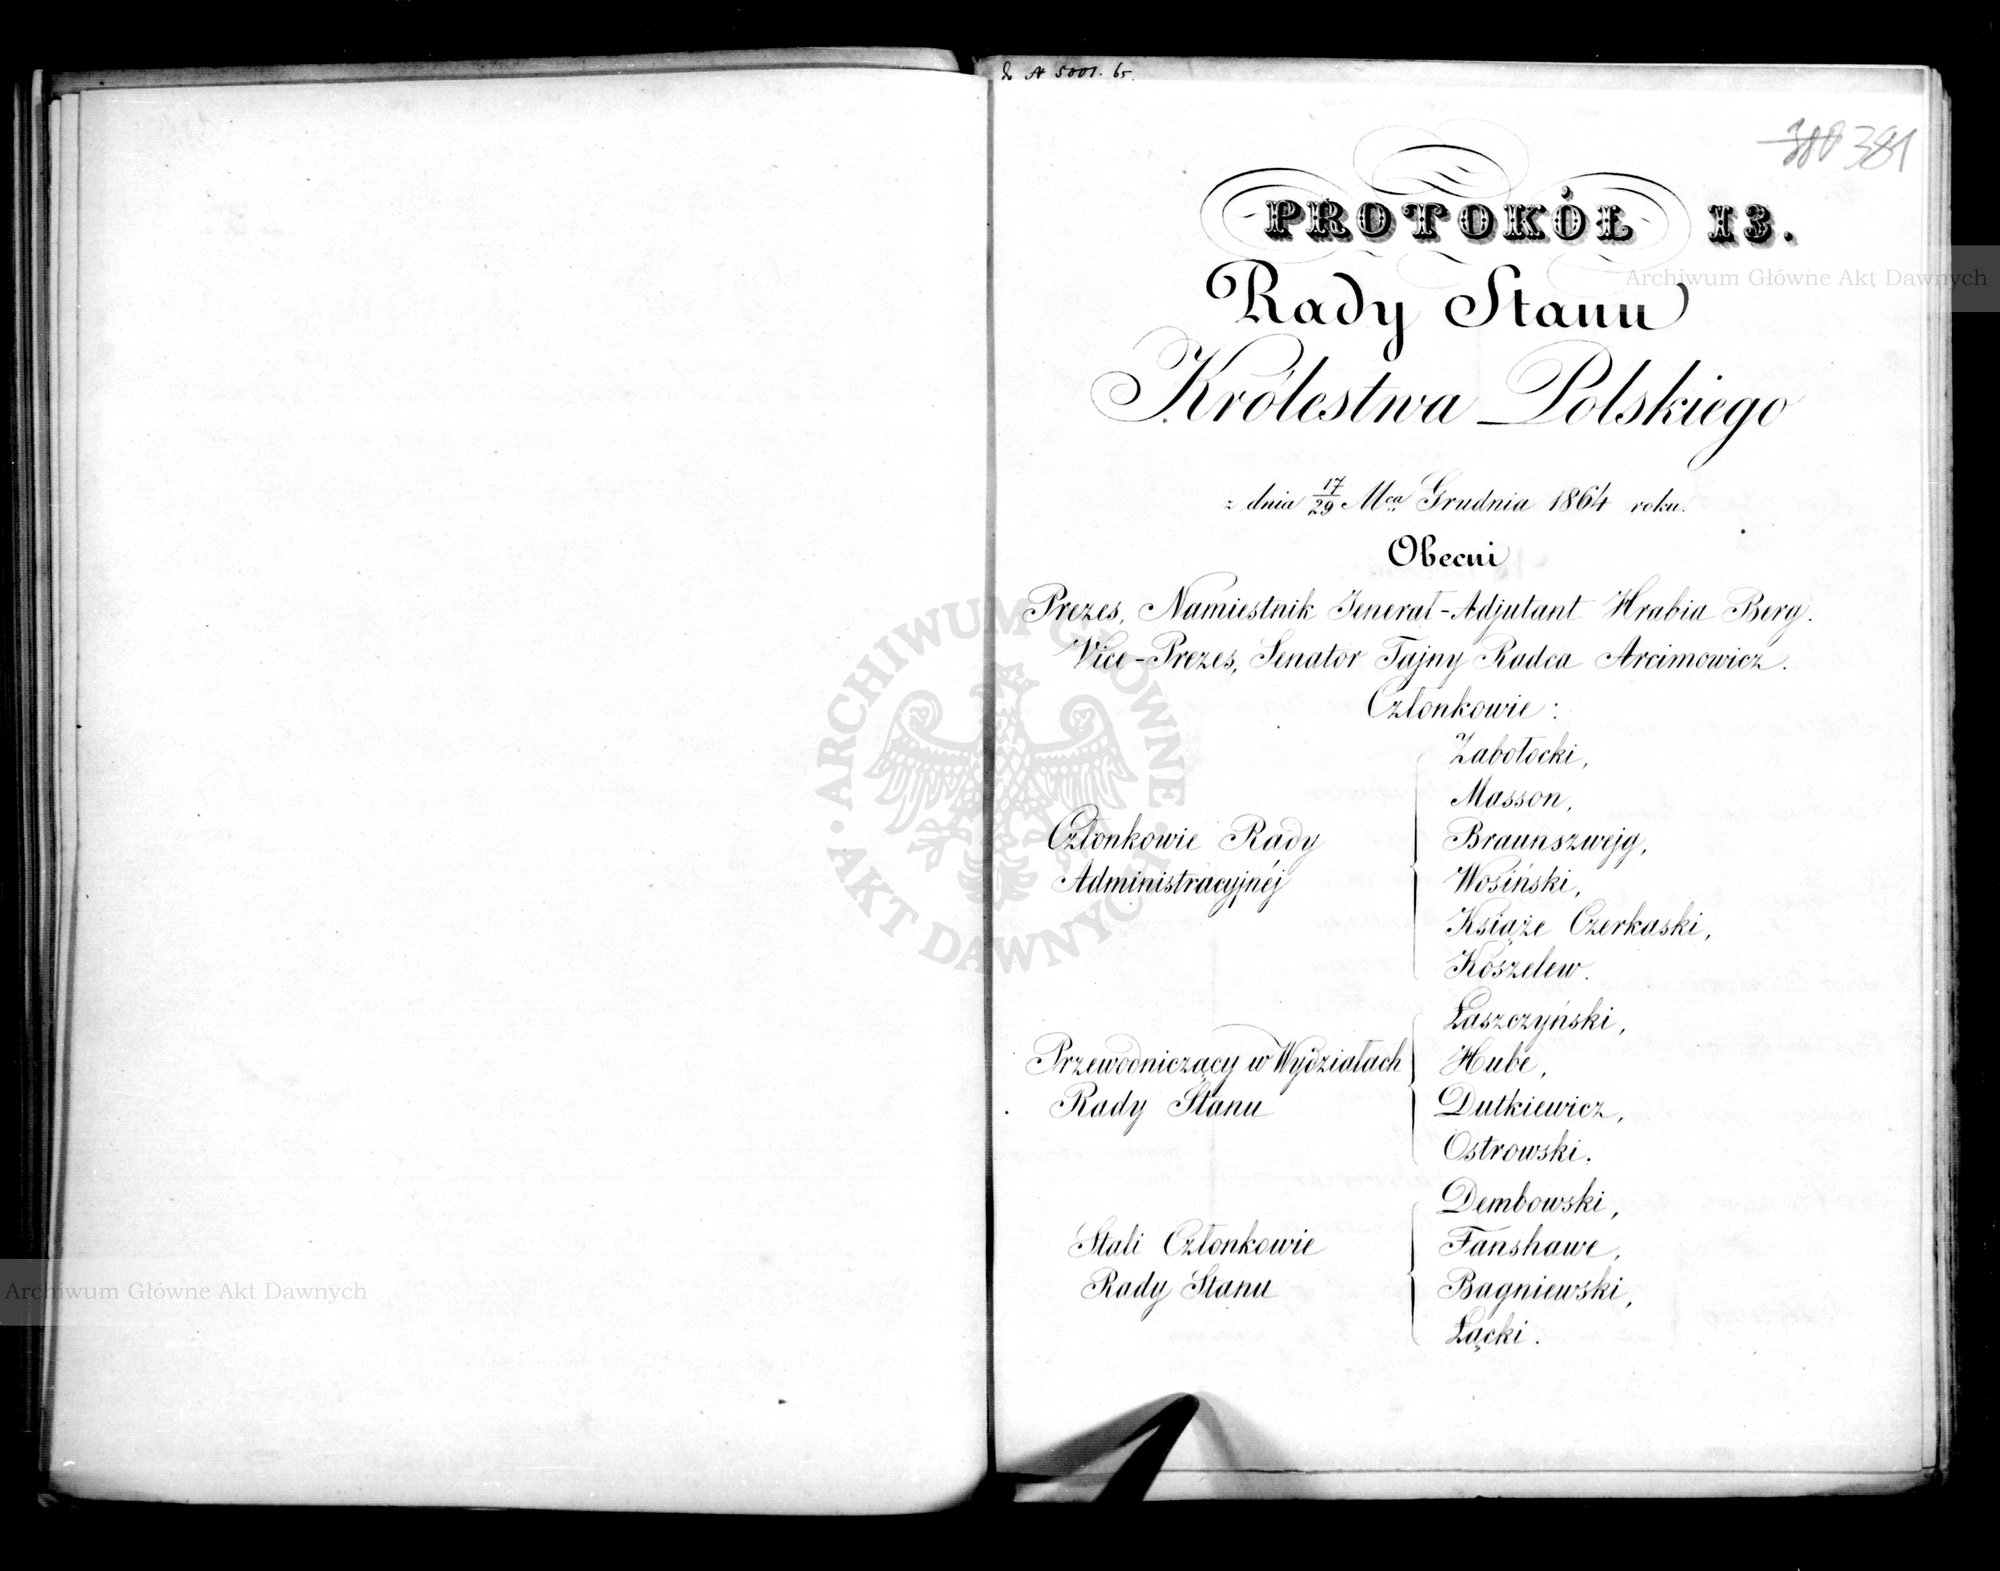 № 5001. 65.
380 381
PROTOKÓŁ 13.
Rady Stanu
Królestwa Polskiego
z dnia 17/29 Mca Grudnia 1864 roku.
Obecni
Prezes, Namiestnik Jenerał-Adjutant Hrabia Berg.
Vice-Prezes, Senator Tajny Radca Arcimowicz.
Członkowie:
Członkowie Rady
Administracyjnéj
Zabołocki,
Masson,
Braunszwejg,
Wosiński,
Książe Czerkaski,
Koszelew.
Przewodniczący w Wydziałach
Rady Stanu
Łaszczyński,
Hube,
Dutkiewicz,
Ostrowski.
Stali Członkowie
Rady Stanu
Dembowski,
Fanshawe,
Bagniewski,
Łącki.
Archiwum Główne Akt Dawnych
ARCHIWUM GŁÓWNE
AKT DAWNYCH
Archiwum Główne Akt Dawnych